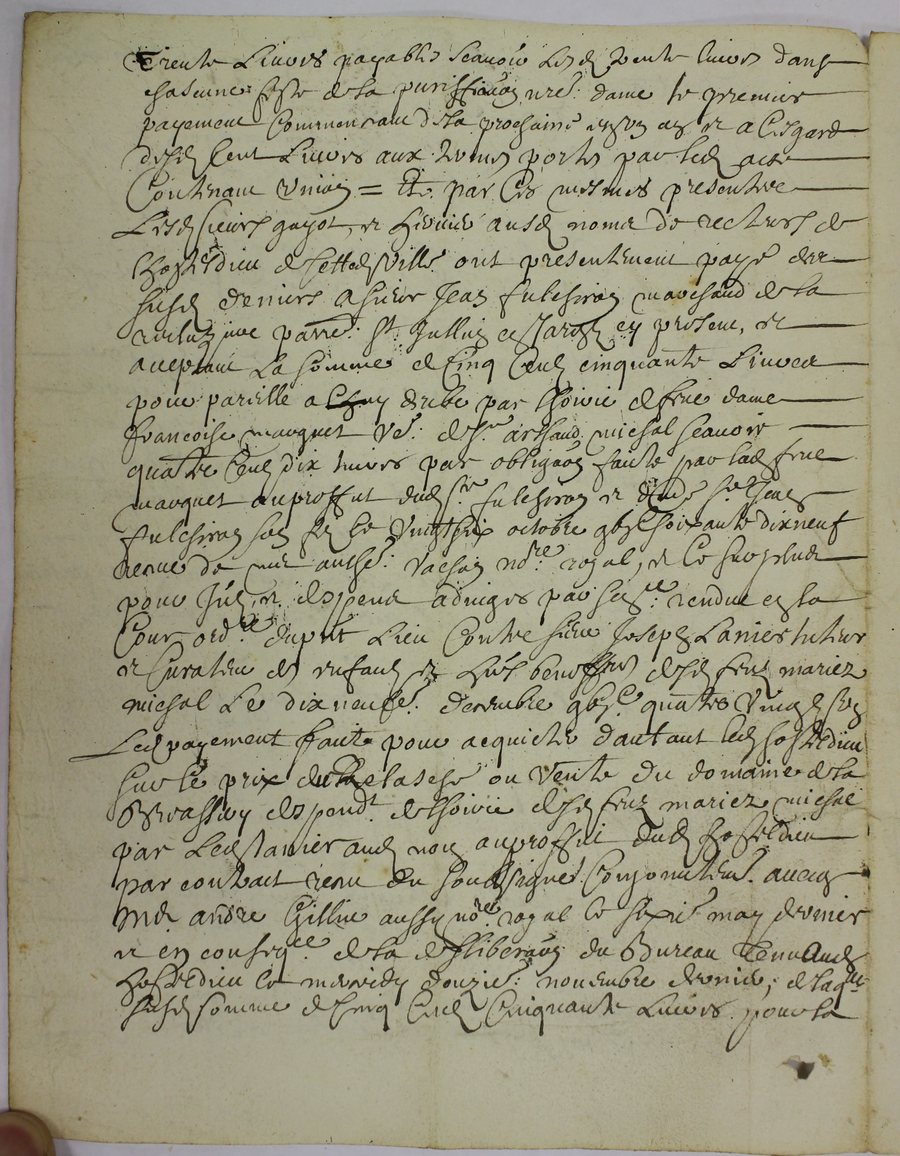 Trente Livres payable scavoir Lesd trente livres dans
chascune feste de la puriffica~on nre: dame le premier
payement Commencant de la prochaine et a Lesgard
desd Cent Livres aux termes portés par led acte
Contenant = Et par Ces mesmes presentes
Lesd sieurs guyot, et ausd noms de recteurs de
lhosteldieu de cette ville ont presentement payé des
susd deniers a sieur Jean fulchiron marchand de la
parre: St Jullien en Jarest cy present, et
acceptant La somme de Cinq Centz cinquante Livres
pour pareille a luy deube par lhoirie de feue dame
francoise marquet ve: de sr arthaud michal scavoir
quattre Centz dix livres par obliga~on faicte par lad feue
marquet au proffit dud sr fulchiron et de sr Jean
fulchiron son le Vingtsix octobre gbjc soixante dix neuf
receue de me anthe: nore royal, et Le surplus
pour et despens adjuges par rendue en la
Cour ordre dupnt Lieu Contre sieur Joseph Lanier tuteur
et Curateur des enfans et desd feuz mariez
michal Le dixneufe: decembre gbjc quatre Vingt
Led payement faict pour acquicter dautant led hosteldieu
sur le prix du Relaschs ou Vente du domaine de la
despendt. de lhoirie desd feuz mariez michal
par Led Lanier aud nom au proffit dud hosteldieu
par contract receu du soubsigné Conjoinctemt. avecq
Me andré Gillier aussy nore royal le may dernier
et en conseqce. de la desliberaon du Bureau tenu aud
hosteldieu le mercredy douzie: novembre dernier, de laqlle
susd somme de Cinq Centz Cinquante Livres pour la